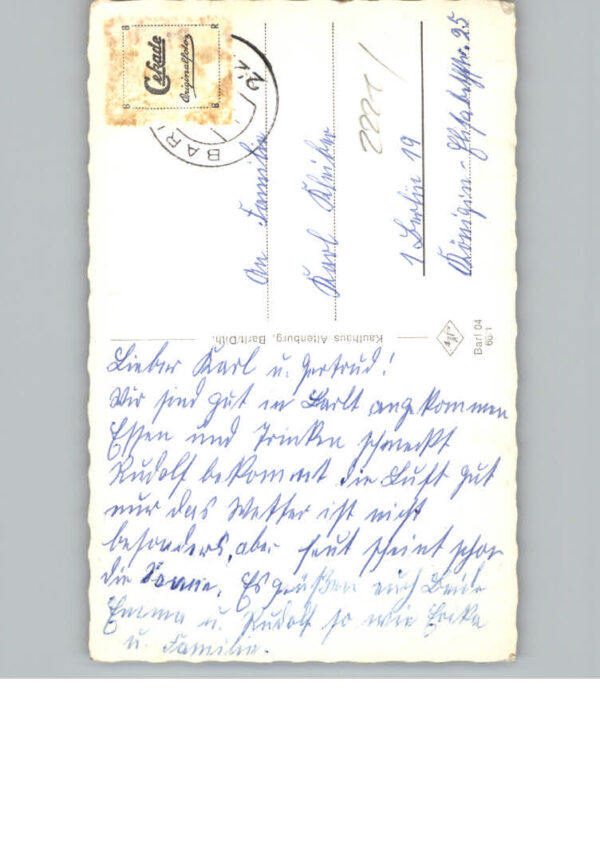 Lieber Karl u. Gertrud!
Wir sind gut in Barlt angekommen
Essen und Trinken schmeckt
Rudolf bekommt die Luft gut
nur das Wetter ist nicht
besonders, aber heut scheint schon
die Sonne. Es grüßen euch Beide
Emma u. Rudolf so wie Erika
u. Familie.
An Familie
Karl
1 Berlin 19
Königin-Elisabethstr. 25
Cekade
Originalfoto
B R
B B
BARL
Kaufhaus Altenburg, Barlt/Dith.
Barl 04
60-1